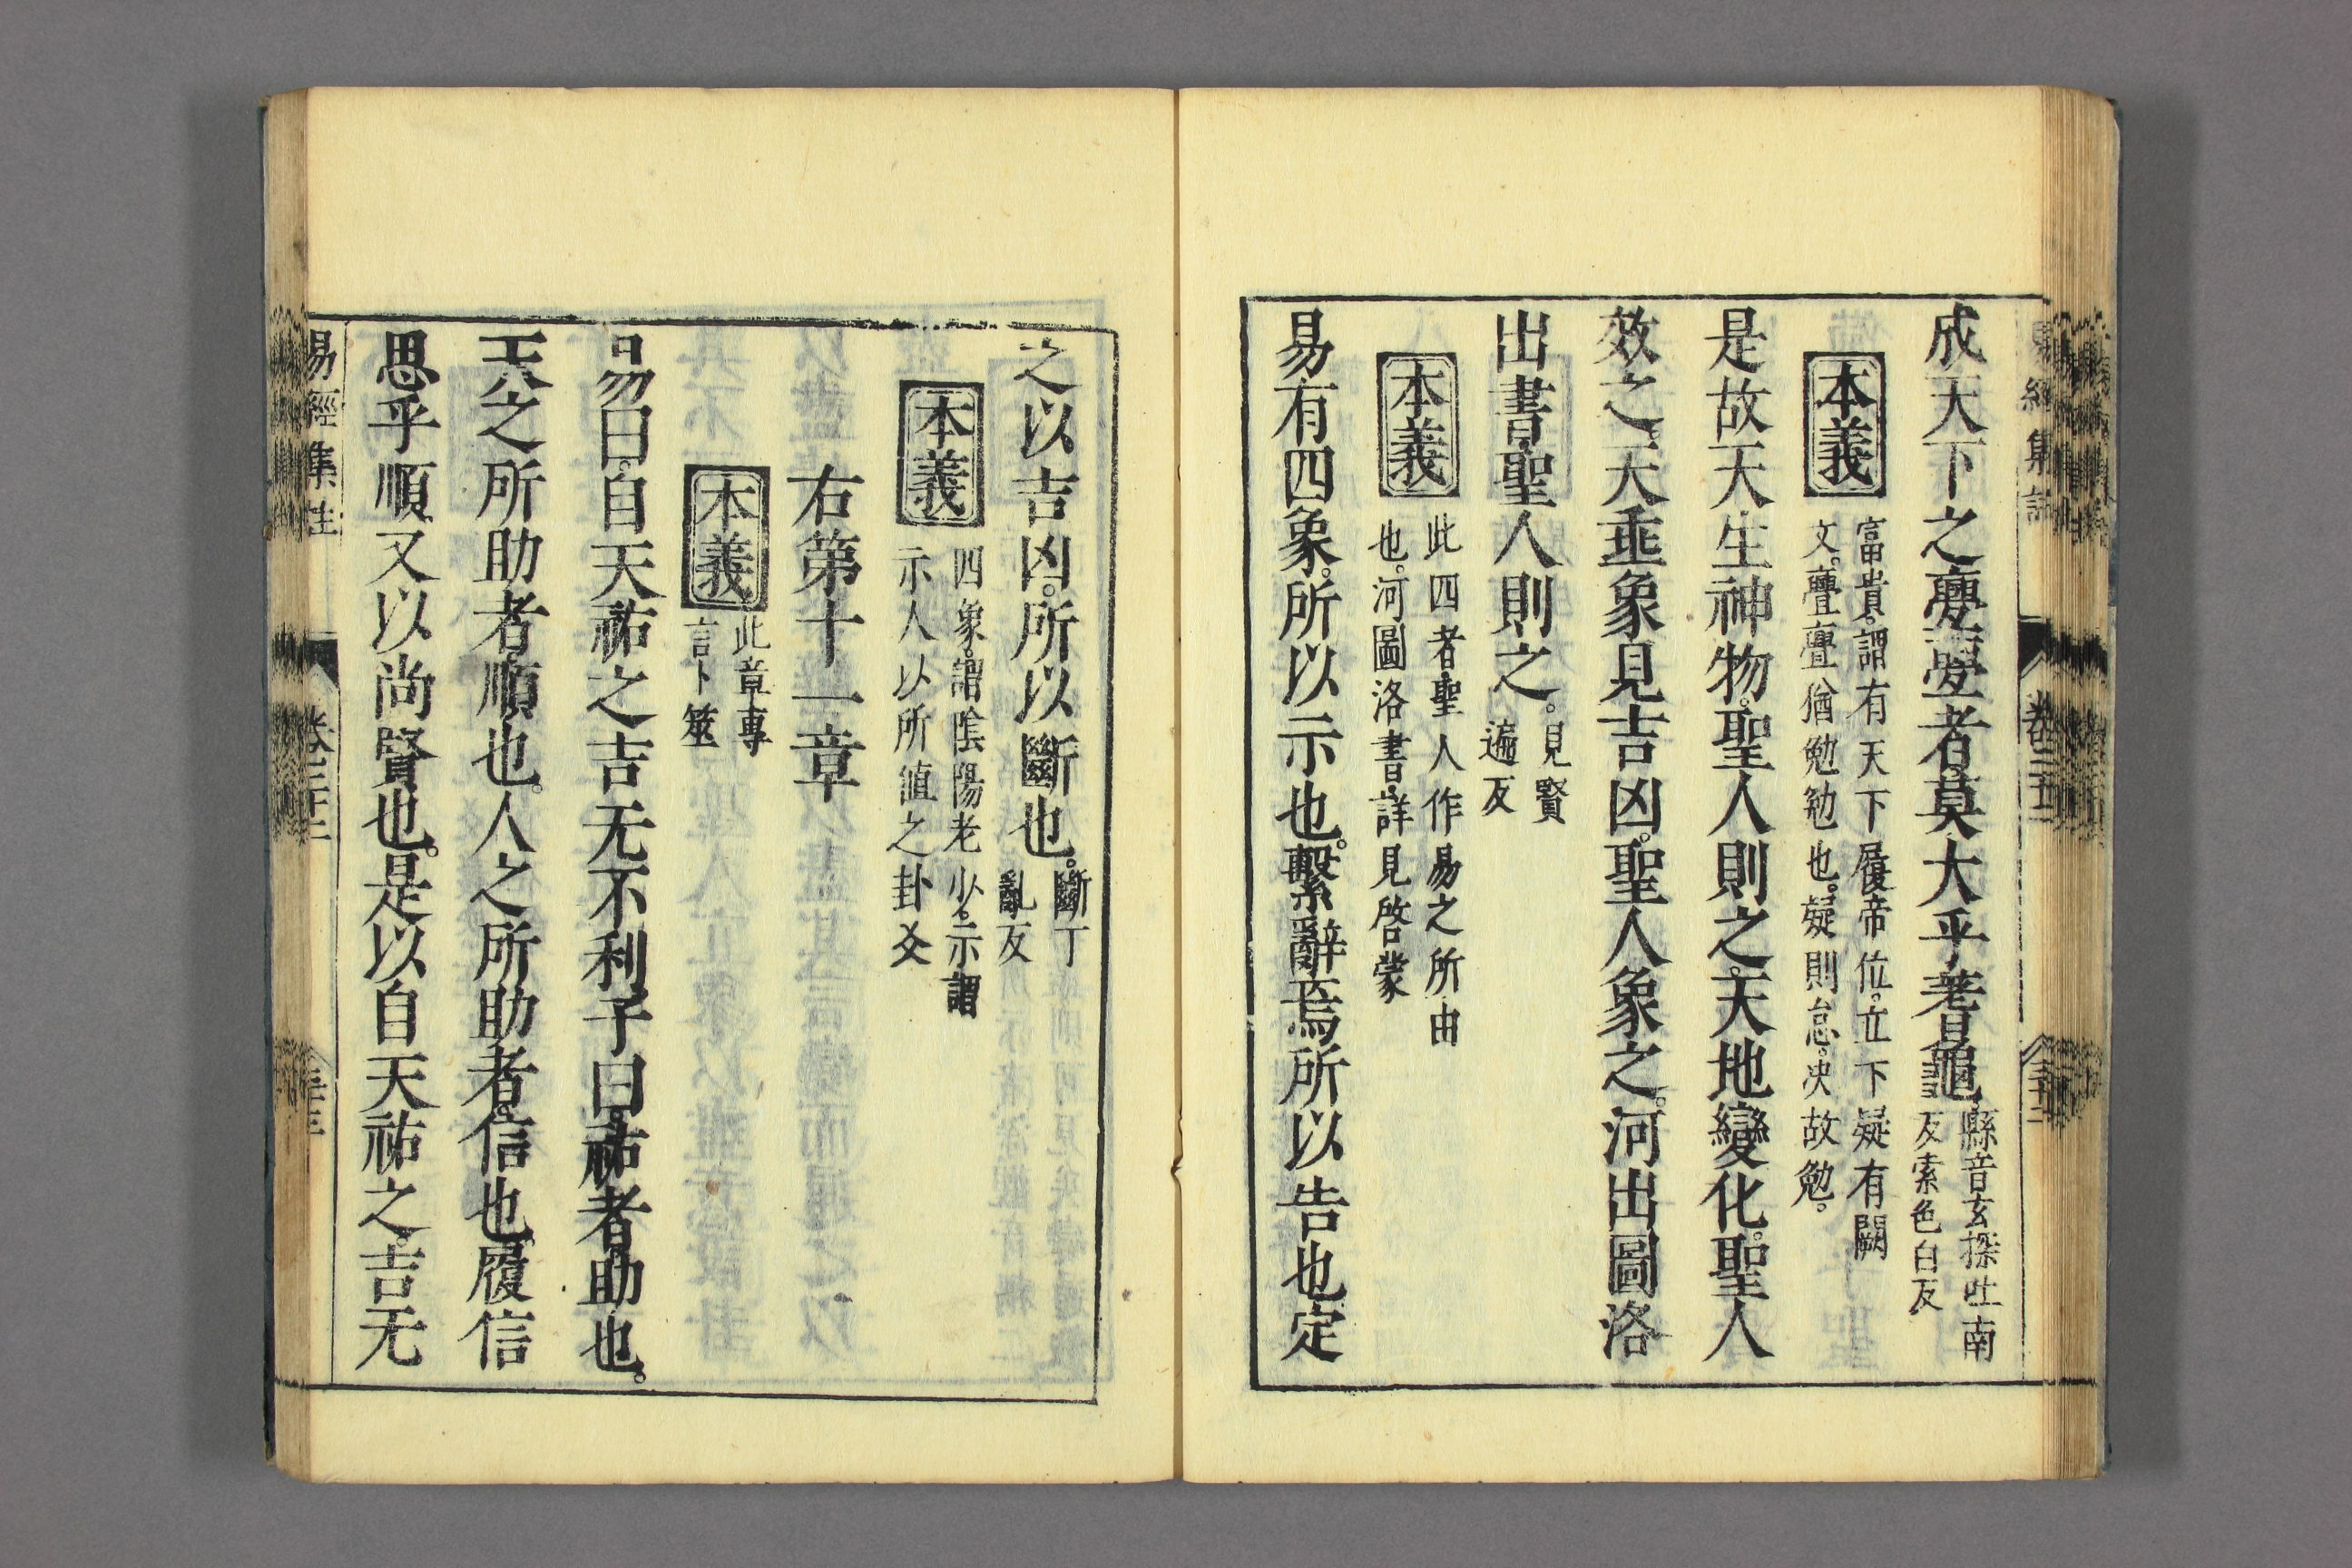 成天下之亹亹者莫大乎蓍龜
縣音玄探吐南
反索色白反
本義
富貴。謂有天下履帝位。立下疑有闕
文。亹亹猶勉勉也。疑則怠。決故勉。
是故天生神物。聖人則之。天地變化。聖人
效之。天垂象見吉凶。聖人象之。河出圖洛
出書。聖人則之。
見賢
遍反
本義
此四者聖人作易之所由
也。河圖洛書。詳見啓蒙
易有四象。所以示也。繫辭焉所以告也定
之以吉凶。所以斷也。
斷丁
亂反
本義
四象。謂陰陽老少。示謂
示人以所値之卦爻
右第十一章
本義
此章專
言卜筮
易曰。自天祐之吉无不利子曰。祐者助也。
天之所助者。順也。人之所助者。信也。履信
思乎順。又以尚賢也。是以自天祐之。吉无
易經集註